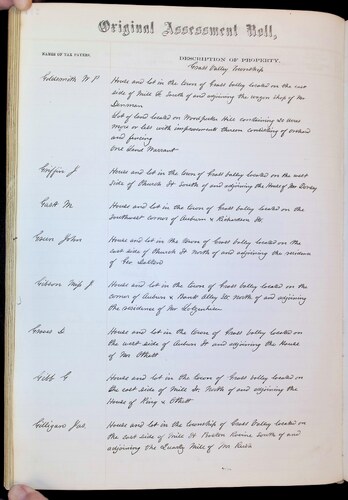 Original Assessment Roll,
NAMES OF TAX PAYERS.
DESCRIPTION OF PROPERTY.
Grass Valley Township
Goldsmith W P
House and lot in the town of Grass valley located on the east
side of Mill St South of and adjoining the wagon shop of Mr
Lot of land located on Woodpecker Hill containing 20 acres
more or less with improvements thereon consisting of orchard
and fencing
one Land Warrant
Griffin J
House and lot in the town of Grass Valley located on the west
side of Church St north of and adjoining the House of Mr
Gast M
House and lot in the town of Grass Valley located on the
Southwest corner of Auburn & Richardson St
Green John
House and lot in the town of Grass Valley located on the
east side of Church St North of and adjoining the residence
of Geo
Gibson J
House and lot in the town of Grass Valley located on the
corner of Auburn & Bank Alley St North of and adjoining
the residence of Mr
Gross L
House and lot in the town of Grass valley located on
the west side of Auburn St and adjoining the House
of Mr Othett
Gibb G
House and lot in the town of Grass Valley located on
the east side of Mill St North of and adjoining the
House of King & Othett
Gilligan Jas
House and lot in the township of Grass Valley located on
the east side of Mill St Boston Ravine South of and
adjoining the Quartz Mill of Mr Rush